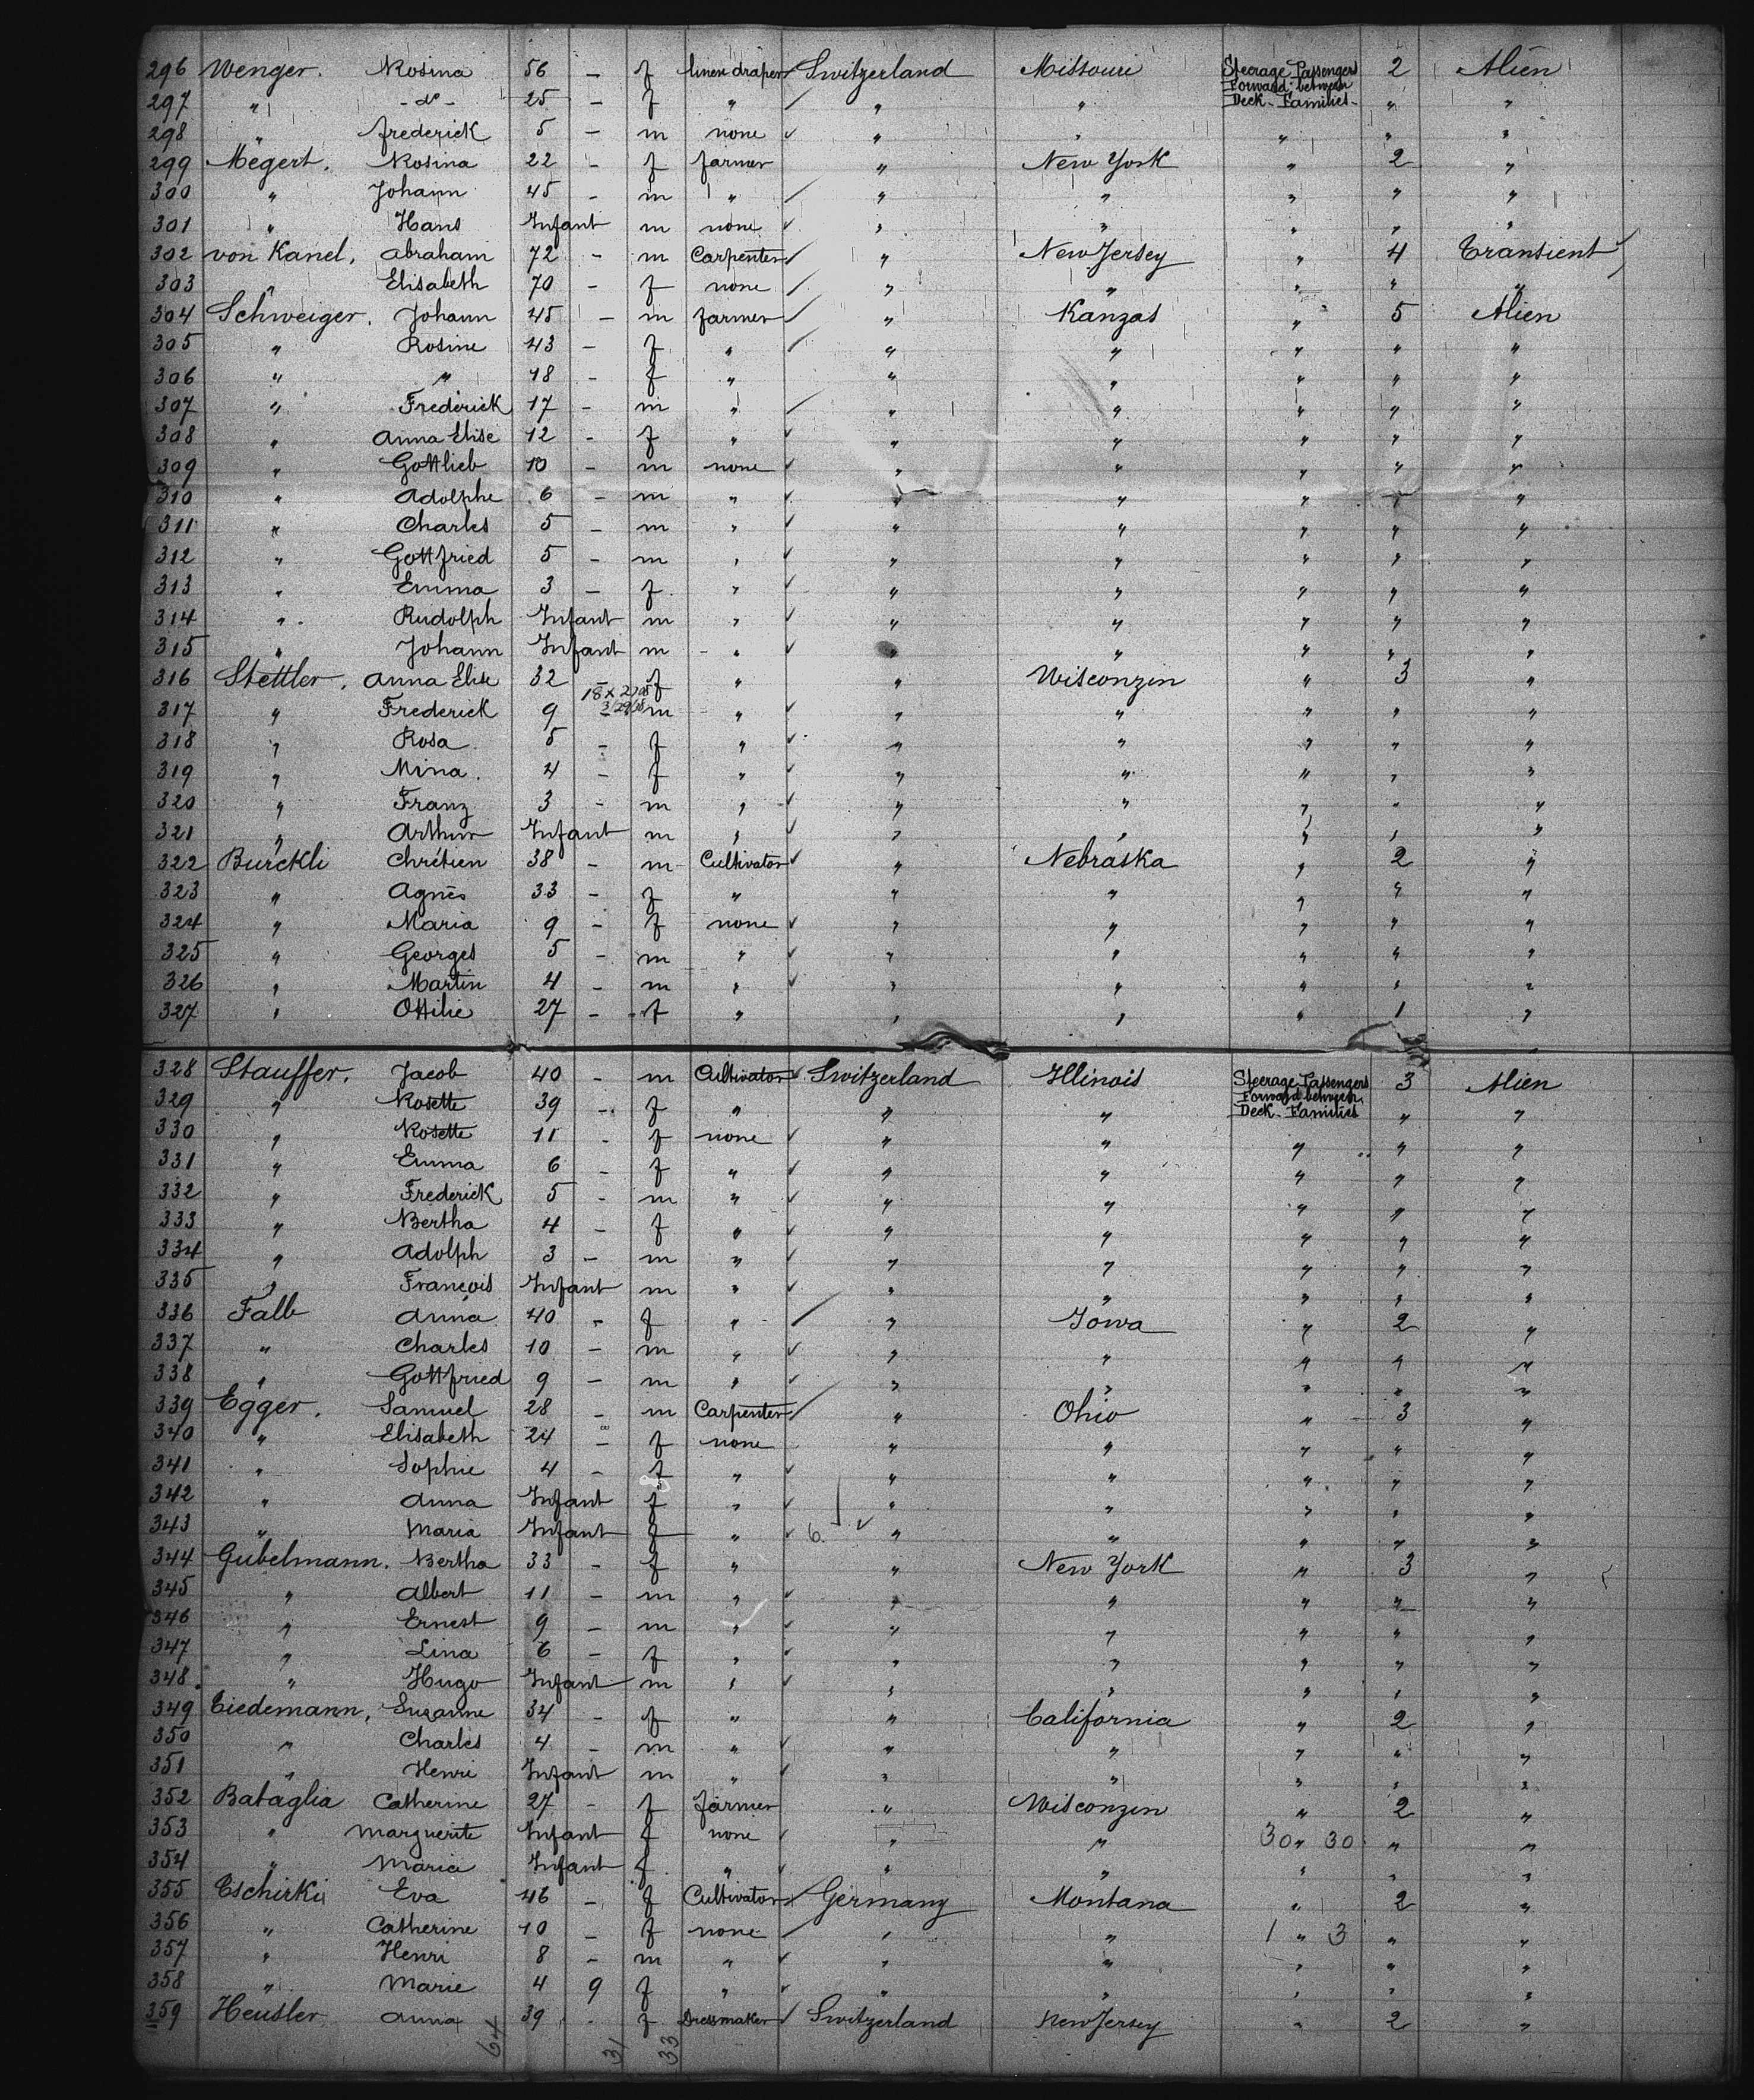 296 Wenger. Rosina 56 - f linen draper Switzerland Missouri Steerage Passengers Forward between Deck-Families- 2 Alien
297 " -do- 25 - f " " " " "
298 " Frederick 5 - m none " " " " "
299 Megert. Rosina 22 - f farmer " New York " 2 "
300 " Johann 45 - m " " " " " "
301 " Hans Infant m none " " " " "
302 von Kanel, Abraham 72 - m Carpenter " New Jersey " 4 Transient
303 " Elisabeth 70 - f none " " " " "
304 Schweiger. Johann 45 - m farmer " Kanzas " 5 Alien
305 " Rosine 43 - f " " " " " "
306 " " 18 - f " " " " " "
307 " Frederick 17 - m " " " " " "
308 " Anna Elise 12 - f " " " " " "
309 " Gottlieb 10 - m none " " " " "
310 " Adolphe 6 - m " " " " " "
311 " Charles 5 - m " " " " " "
312 " Gottfried 5 - m " " " " " "
313 " Emma 3 - f. " " " " " "
314 " Rudolph Infant m " " " " " "
315 " Johann Infant m " " " " " "
316 Stettler. Anna Elise 32 - f " " Wisconzin " 3 "
317 " Frederick 9 - m " " " " " "
318 " Rosa 5 - f " " " " " "
319 " Mina. 4 - f " " " " " "
320 " Franz 3 - m " " " " " "
321 " Arthur Infant m " " " " " "
322 Burckli Chrétien 38 - m Cultivator " Nebraska " 2 "
323 " Agnès 33 - f " " " " " "
324 " Maria 9 - f none " " " " "
325 " Georges 5 - m " " " " " "
326 " Martin 4 - m " " " " " "
327 " Ottilie 27 - f " " " " 1 "
328 Stauffer. Jacob 40 - m Cultivator Switzerland Illinois Steerage Passengers Forward between Deck-Families 3 Alien
329 " Rosette 39 - f " " " " "
330 " Rosette 11 - f none " " " " "
331 " Emma 6 - f " " " " " "
332 " Frederick 5 - m " " " " " "
333 " Bertha 4 - f " " " " " "
334 " Adolph 3 - m " " " " " "
335 " François Infant m " " " " " "
336 Falb Anna 40 - f " " Iowa " 2 "
337 " Charles 10 - m " " " " " "
338 " Gottfried 9 - m " " " " " "
339 Egger. Samuel 28 - m Carpenter " Ohio " 3 "
340 " Elisabeth 24 - f none " " " " "
341 " Sophie 4 - f " " " " " "
342 " Anna Infant f " " " " " "
343 " Maria Infant f " 6 " " " " "
344 Gubelmann. Bertha 33 - f " " New York " 3 "
345 " Albert 11 - m " " " " " "
346 " Ernest 9 - m " " " " " "
347 " Lina 6 - f " " " " " "
348 " Hugo Infant m " " " " " "
349 Tiedemann, Suzanne 34 - f " " California " 2 "
350 " Charles 4 - m " " " " " "
351 " Henri Infant m " " " " " "
352 Bataglia Catherine 27 - f farmer " Wisconzin " 2 "
353 " Marguerite Infant f none " " 30 " 30 " "
354 " Maria Infant f. " " " " " "
355 Tschirki Eva 46 - f Cultivator Germany Montana " 2 "
356 " Catherine 10 - f none " " 1 " 3 " "
357 " Henri 8 - m " " " " " "
358 " Marie 4 9 f " " " " " "
359 Heusler Anna 39 - f Dressmaker Switzerland New Jersey " 2 "
64 31 33